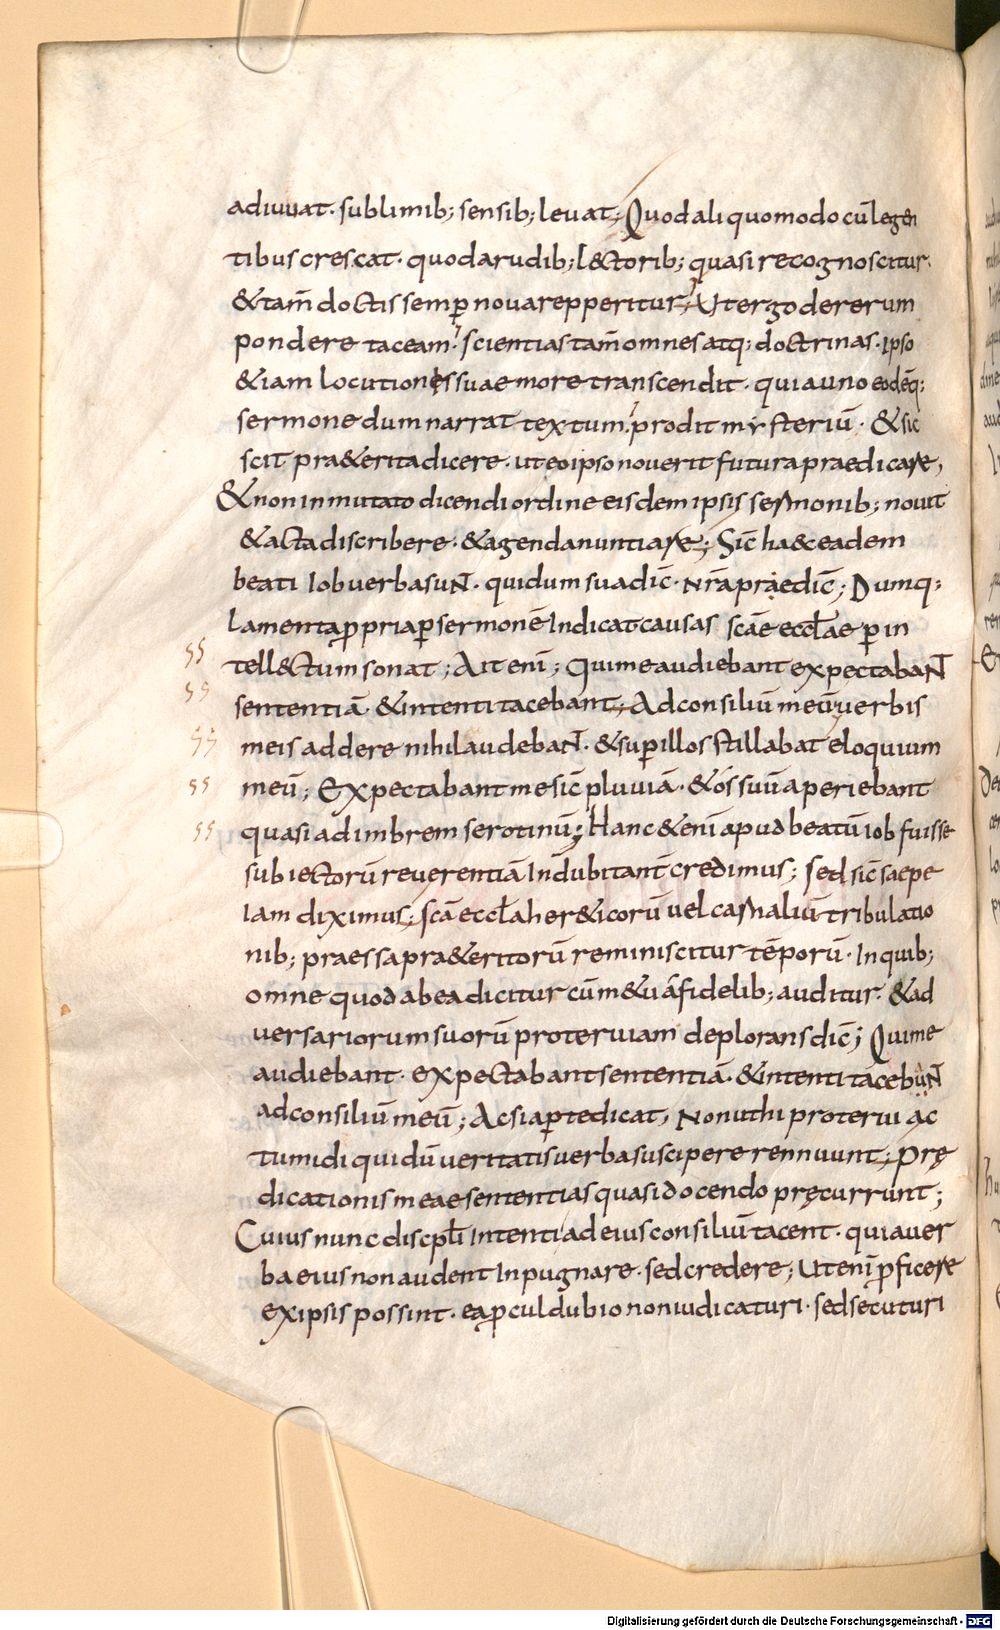 adiuuat. sublimib; sensib; leuat; Quod aliquomodo cū legen
tibus crescat. quod a rudib; lectorib; quasi recognoscitur.
& tam̄ doctis semp̄ noua repperitur; Ut ergo de rerum
pondere taceam. scientias tam̄ omnes atq; doctrinas. ipso
&iam locutionis suae more transcendit. quia uno eodēq;
sermone dum narrat textum. prodit mysteriū. & sic
scit pra&erita dicere. ut eo ipso nouerit futura praedicare,
& non inmutato dicendi ordine eisdem ipsis sermonib; nouit
& acta discribere. & agenda nuntiare; Sic̄ haec eadem
beati Iob uerba sunt. qui dum sua dic̄. nr̄a praedic̄; Dumq;
lamenta ꝓpria ꝑ sermonē Indicat causas scāe eccl̄ae ꝑ in
tell&ctum sonat; Ait eni; Qui me audiebant expectabant
sententiā & intenti tacebant; Ad consiliū meū uerbis
meis addere nihil audebant. & suꝑ illos stillabat eloquium
meū; Expectabant me sic̄ pluuiā. & os suū aperiebant
quasi ad imbrem serotinū; Hanc & eni apud beatū iob fuisse
subiectorū reuerentiā Indubitant̄ credimus; sed sic̄ saepe
Iam diximus; scā eccl̄a her&icorū uel carnaliū tribulatio
nib; praessa pra&eritorū reminiscitur tēporū. In quib;
omne quod ab ea dicitur cūm&u a fidelib; auditur. & ad
uersariorum suorū proteruiam deplorans dic̄; Qui me
audiebant. expectabant sententiā. & intenti tacebunt
ad consiliū meū; Ac si aꝑte dicat, Non ut hi proterui ac
tumidi qui dū ueritatis uerba suscipere rennuunt; prę
dicationis meae sententias quasi docendo pręcurrunt;
Cuius nunc discpl̄i Intenti ad eius consiliū tacent. quia uer
ba eius non audent Inpugnare. sed credere; Ut eni ꝓficere
ex ipsis possint. ea ꝓcul dubio non iudicaturi. sed secuturi
Digitalisierung gefördert durch die Deutsche Forschungsgemeinschaft - DFG